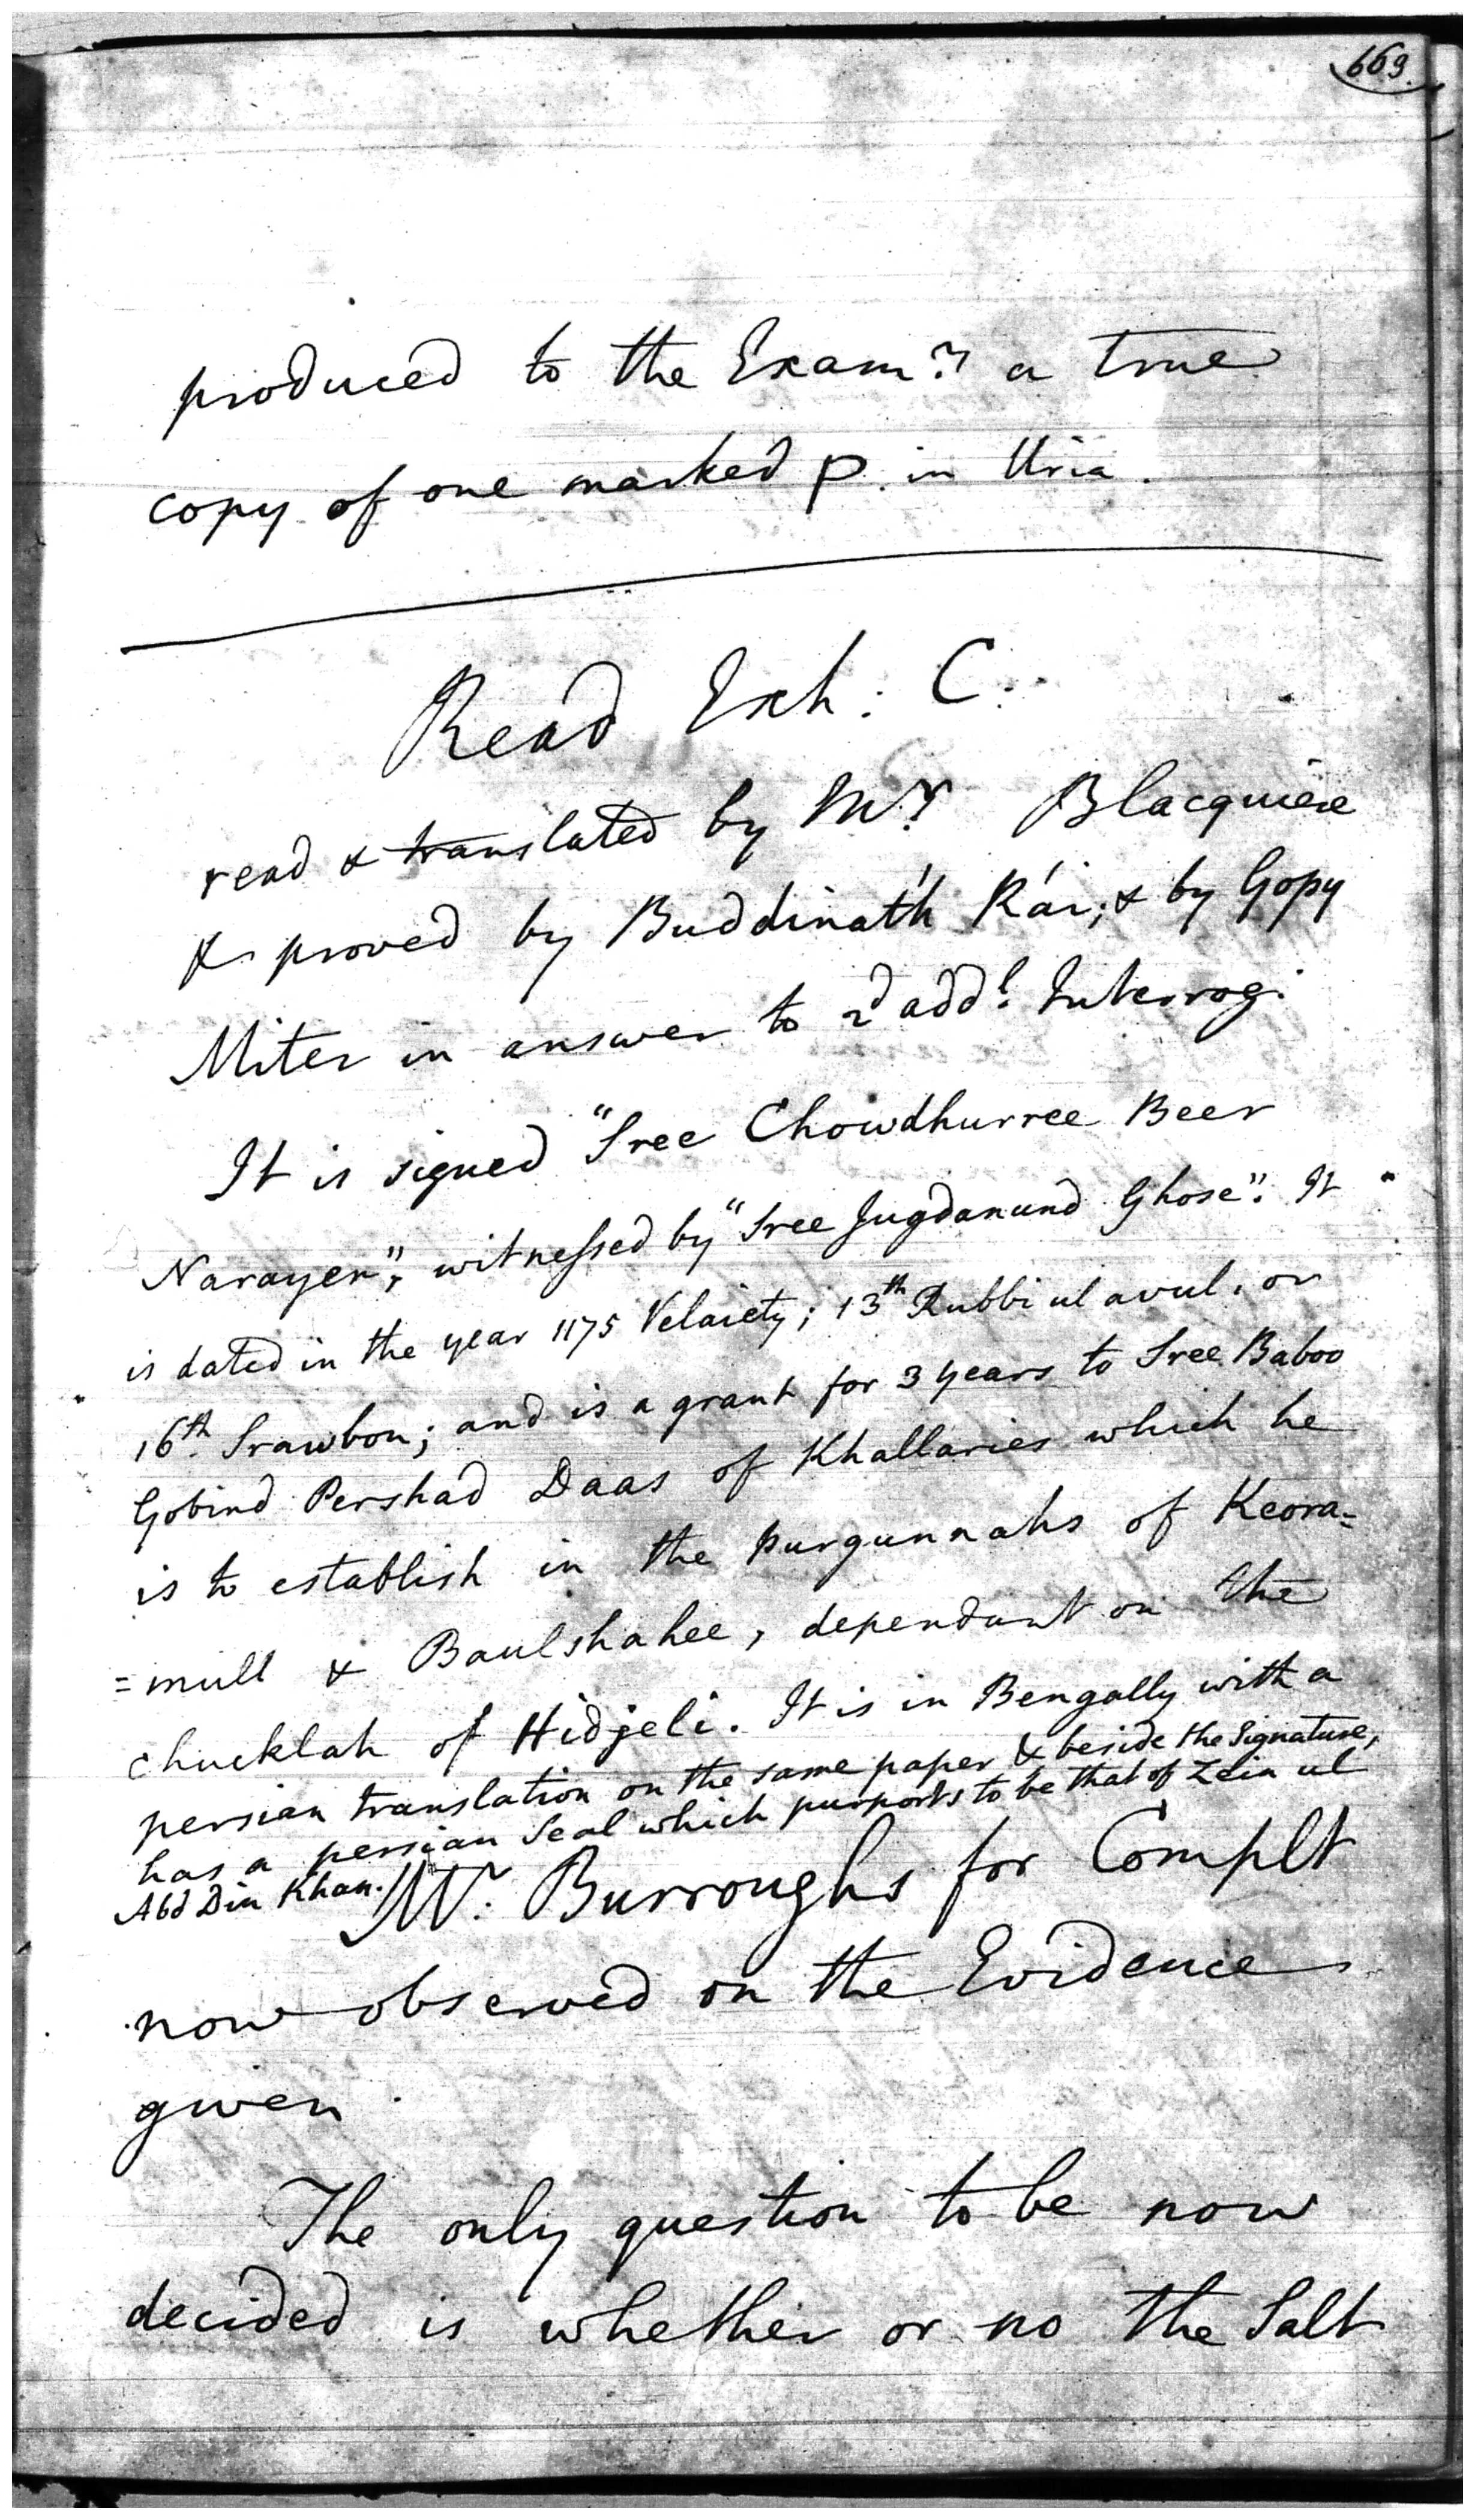 669.
produced to the Exam.r a true
copy of one marked P. in Uria.
Read Exh: C.
read & translated by Mr. Blacquiere
& proved by Buddinath Rái; & by Gopy
Miter in answer to 2d addl. Interrog:
It is signed "Sree Chowdhurree Beer
Narayen"; witnessed by "Sree Jugdanund Ghose". It
is dated in the year 1175 Velaiety; 13th Rubbi ul avul, or
16th Srawbon; and is a grant for 3 years to Sree Baboo
Gobind Pershad Daas of Khallaries which he
is to establish in the purgunnahs of Keora=
=mull & Baulshahee, dependant on the
chucklah of Hidjeli. It is in Bengally with a
persian translation on the same paper & beside the Signature,
has a persian Seal which purports to be that of Zein ul
Abd Din Khan.
Mr. Burroughs for Complt
now observed on the Evidence
given.
The only question to be now
decided is whether or no the Salt